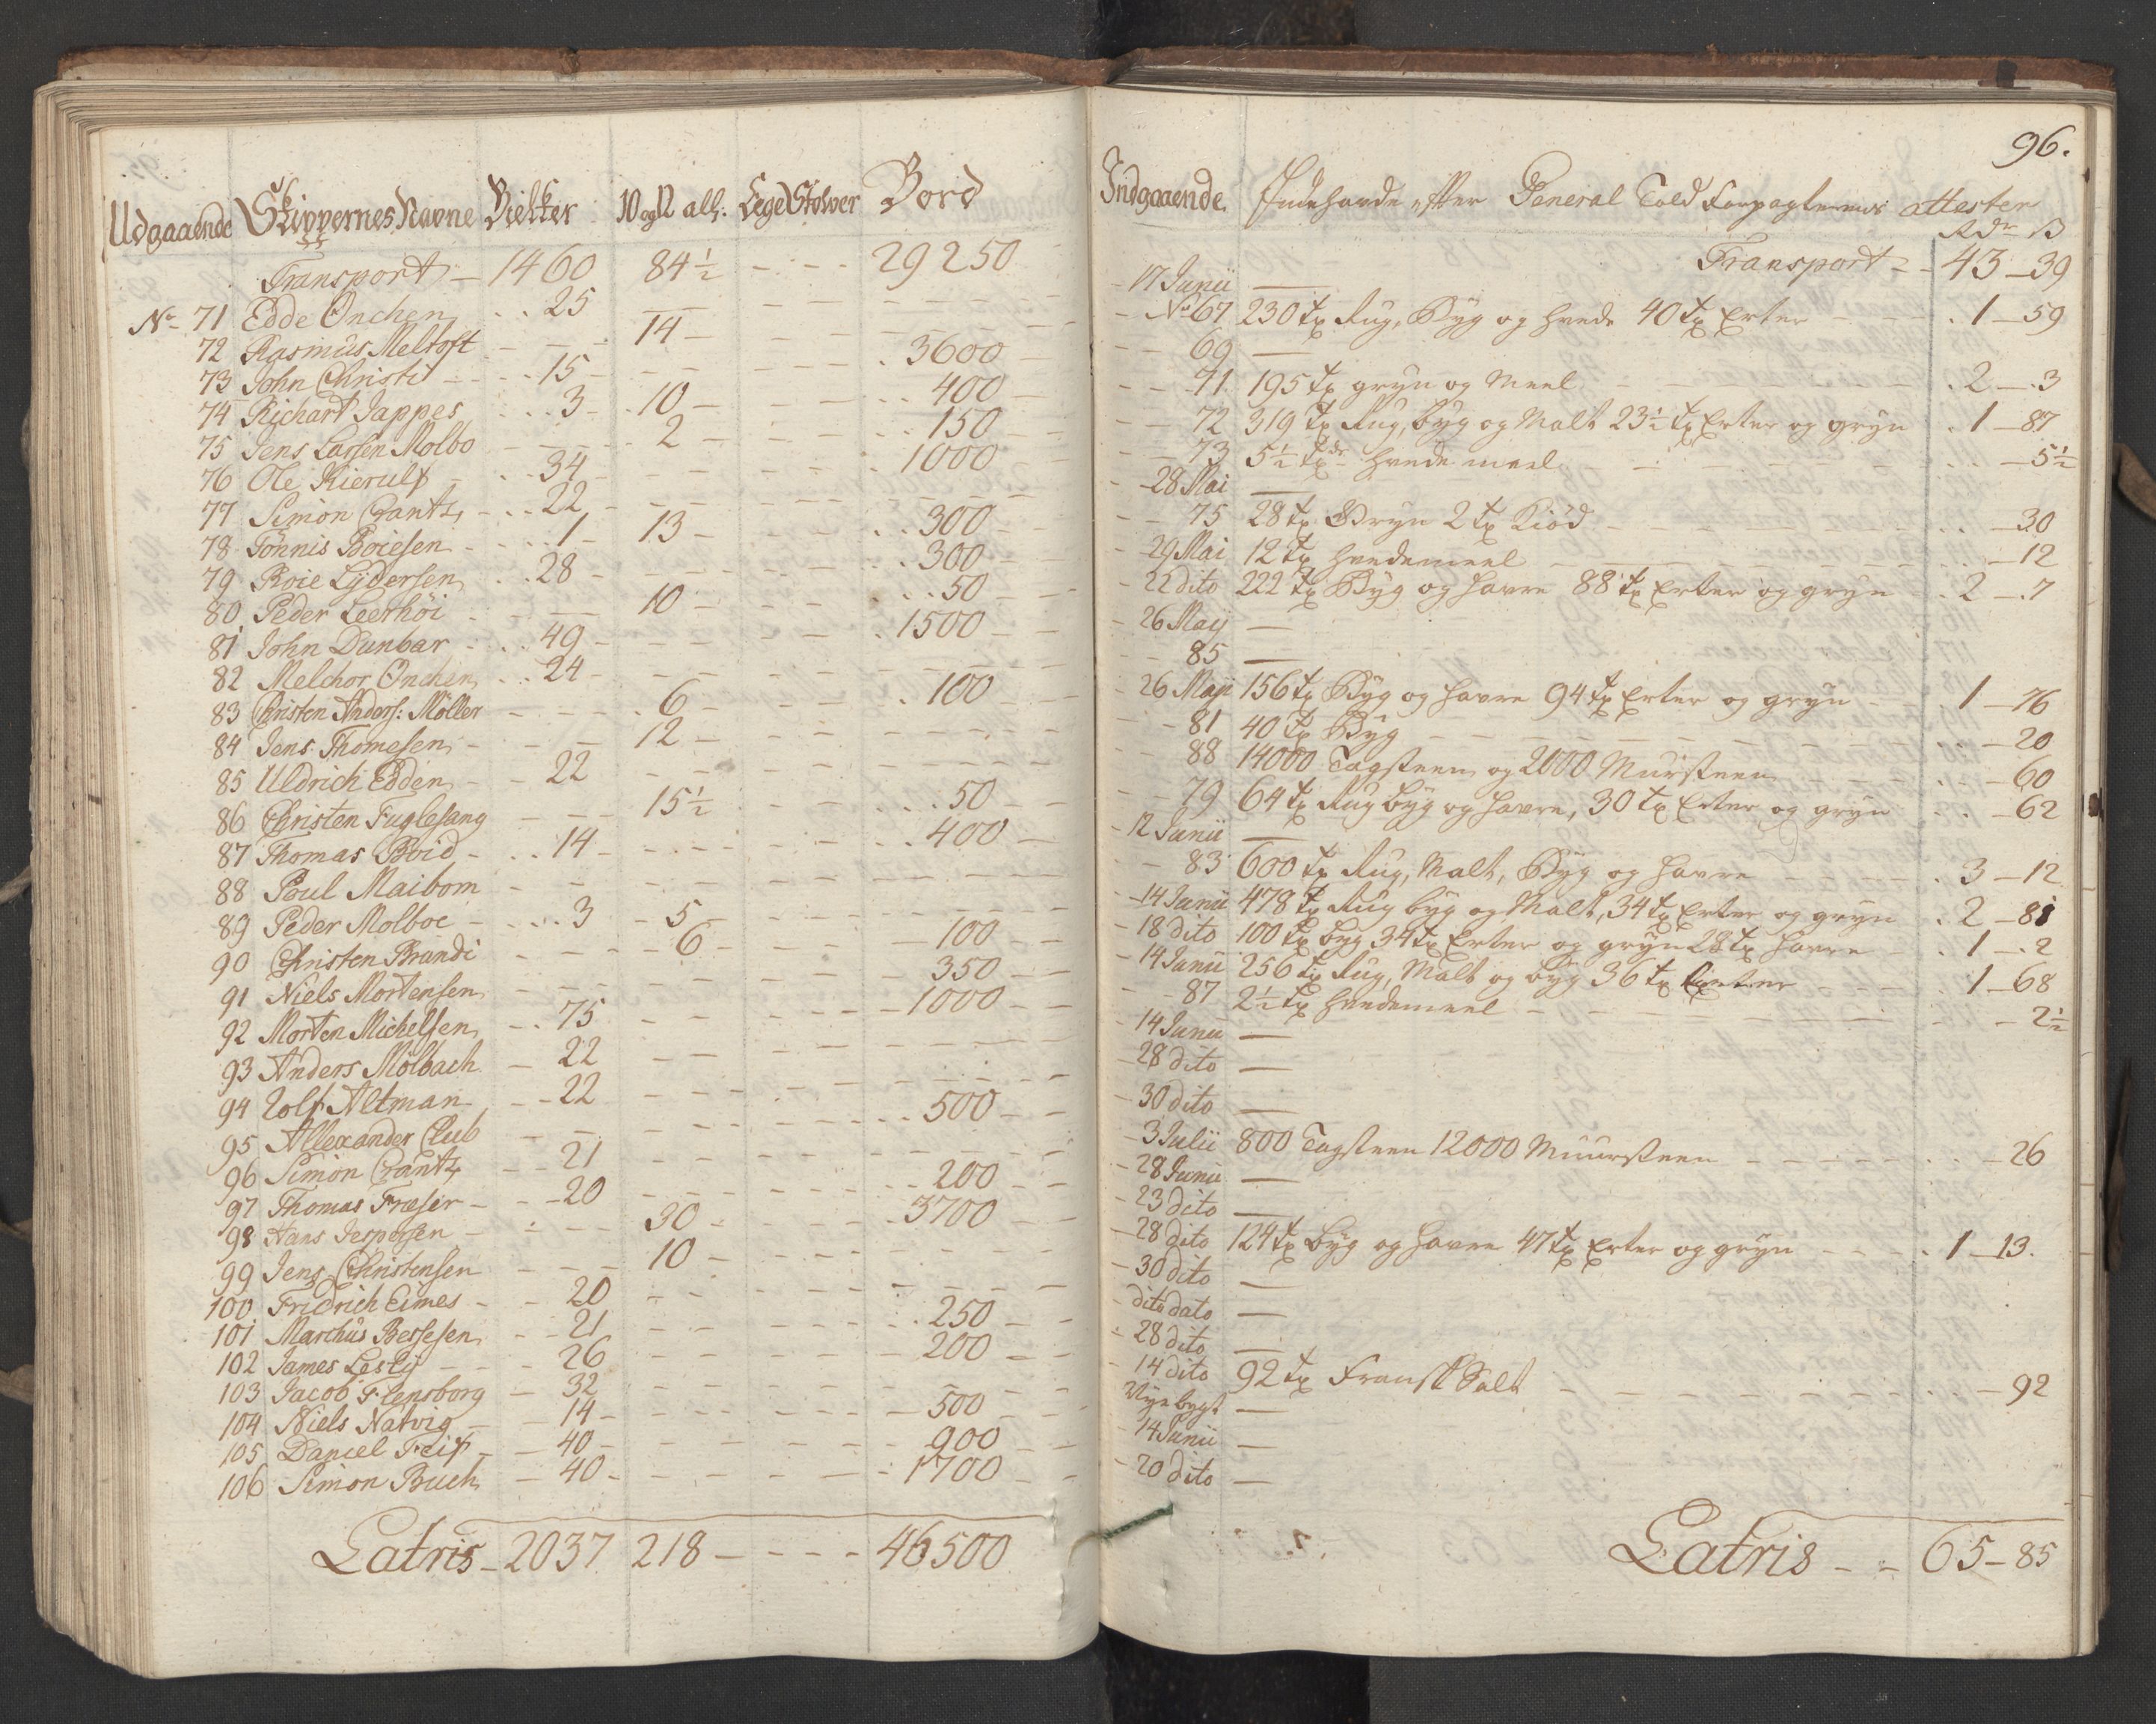 Udgaaende Skippernes Navne Bielker 10 og 12 all: Lege Stolper Bord
Transport – 1460 84½ - - - - 29250
No 71 Edde Onchen . . 25 — — - - - -
72 Rasmus Meltoft — — — 14 — - - - . 3600 —
73 John Christi — . . 15 — — — - - - . . 400 —
74 Richart Jappes . . . 3 — . 10 — - - - . . 150 —
75 Jens Larsen Molbo — — — . 2 — - - - . 1000 —
76 Ole Kierulf — . . 34 — — — - - - - - -
77 Simon Crantz, — . . 22 — — — - - - . . 300 —
78 Tönnis Boiesen — . . . 1 — 13 — - - - . . 300 —
79 Boie Lydersen . . 28 — — — - - - . . . 50 —
80 Peder Leerhöi — — — 10 — - - - . 1500 —
81 John Dunbar — . . 49 — — — - - - - - -
82 Melchor Onchen . . 24 — — — - - - . 100 —
83 Christen Anders: Möller — — — . 6 — - - - - - -
84 Jens Thomesen — — — 12 — - - - - - -
85 Uldrich Edden — — 22 — — — - - - . . . 50 —
86 Christen Fuglesang — — — 15½ - - - . . 400 —
87 Thomas Boid — . . 14 — — — - - - - - -
88 Poul Maibom — — — — — - - - - - -
89 Peder Molboe — . . . 3 — 5 — - - - — 100 —
90 Christen Brandi — — — — 6 — - - - — 350 —
91 Niels Mortensen — — — — — - - - — 1000 —
92 Morten Michelsen — . . 75 — — — - - - - - -
93 Anders Molbach — 22 — — — - - - - - -
94 Rolf Altman — — 22 — — — - - - . . 500 —
95 Allexander Club — — — — — - - - - - -
96 Simon Crantz, — — 21 — — — - - - — 200 —
97 Thomas Fraser — — 20 — — — - - - — 3700 —
98 Hans Jespersen — — — 30 — - - - - - -
99 Jens Christensen — — — 10 — - - - - - -
100 Fridrich Eimes — — 20 — — — - - - . 250 —
101 Marchus Bersesen — — 21 — — — - - - — 200 —
102 James Lesly — — — 26 — — — - - - - - -
103 Jacob Flensborg — 32 — — — - - - — 500 —
104 Niels Natvig — — 14 — — — - - - — 900 —
105 Daniel Feif — — 40 — — — - - - — 1700 —
106 Simon Buch — 40 — — — - - -
Latris – 2037 218 — - - - 46500
96.
Indgaaende Indehavde efter General Told Forpagternes attester
Rdr ß
Transport - - 43 – 39
17 Junii —
No 67 230 tr Rug, Byg og hvede 40 tr Erter — — . 1 – 59
69 —
71 195 tr gryn og Meel — — — . 2 – . 3
72 319 tr Rug, byg og Malt 23½ tr Erter og gryn . 1 – 87
73 5½ tdr hvede meel — — — – 5½
28 Mai —
75 28 tr Gryn 2 tr Kiöd — — — – 30
29 Mai 12 tr hvedemeel — — — – 12
22 dito 222 tr Byg og havre 88 tr Erter og gryn — . 2 – . 7
26 Maij —
85 —
26 Maji 156 tr Byg og havre 94 tr Erter og gryn — 1 – 76
81 40 tr Byg — — — . . – 20
88 14000 Tagsteen og 2000 Mursteen — — . . – 60
79 64 tr Rug byg og havre, 30 tr Erter og gryn . . – 62
12 Junii —
83 600 tr Rug, Malt, Byg og havre — — . 3 – 12
14 Junii 478 tr Rug byg og Malt, 34 tr Erter og gryn . 2 – 81
18 dito 100 tr byg 34 tr Erter og gryn 28 tr havre — . 1 – . 2
14 Junii 256 tr Rug, Malt og byg 36 tr Erter — — . 1 – 68
87 2½ tr hvedemeel — — — – 2½
14 Junii —
28 dito —
30 dito —
3 Julii 800 Tagsteen 12000 Muursteen — — — . . – 26
28 Junii —
23 dito —
28 dito 124 tr byg og havre 47 tr Erter og gryn — — . 1 – 13.
30 dito —
dito dato —
28 dito —
14 dito 92 tr Fransk Salt — — — . . – 92
Nye bygt —
14 Junii —
20 dito —
Latris - - 65 – 85